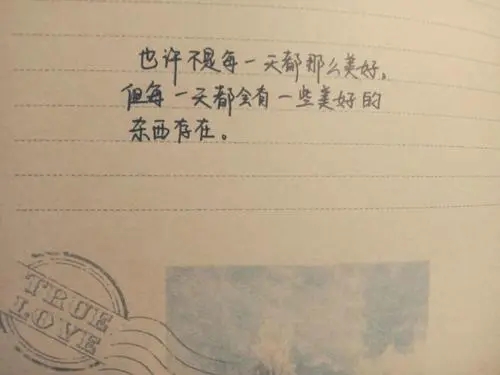 也许不是每一天都那么美好。
但每一天都会有一些美好的
东西存在。
TRUE
LOVE